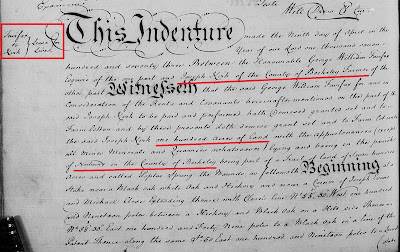 Examined
Teste Will Drew C. Cur
Fairfax
to
Rich
Lease &c
This Indenture made the Ninth day of April in the
Year of our Lord one thousand seven
hundred and seventy three Between the Honorable George William Fairfax
Esquire of the one part and Joseph of the County of Berkeley Farmer of the
other part Witnesseth that the said George William Fairfax for the
Consideration of the Rents and Covenants hereinafter mentioned on the part of the
said Joseph to be paid and performed hath Demised granted and to
Farm letten and by these presents doth demise grant set and to Farm let unto
the said Joseph one hundred Acres of Land with the Appurtenances (except
all Mines Minerals and Quarries whatsoever) lying and being in the parish
of in the County of Berkeley being part of a Tract of Land of
Acres and called Spring the bounds as followeth Beginning at a
Stake near a Black oak white Oak and Hickory and near a Corner of
and Michael Extending thence with line N 55. 30 West one hundred
and Nineteen poles between a Hickory and Black oak on a Hill side Thence
N 34. 30 East one hundred and Forty Nine poles to a Black oak in a line of the
Patent Thence along the same S 50 East one hundred and Nineteen poles to a